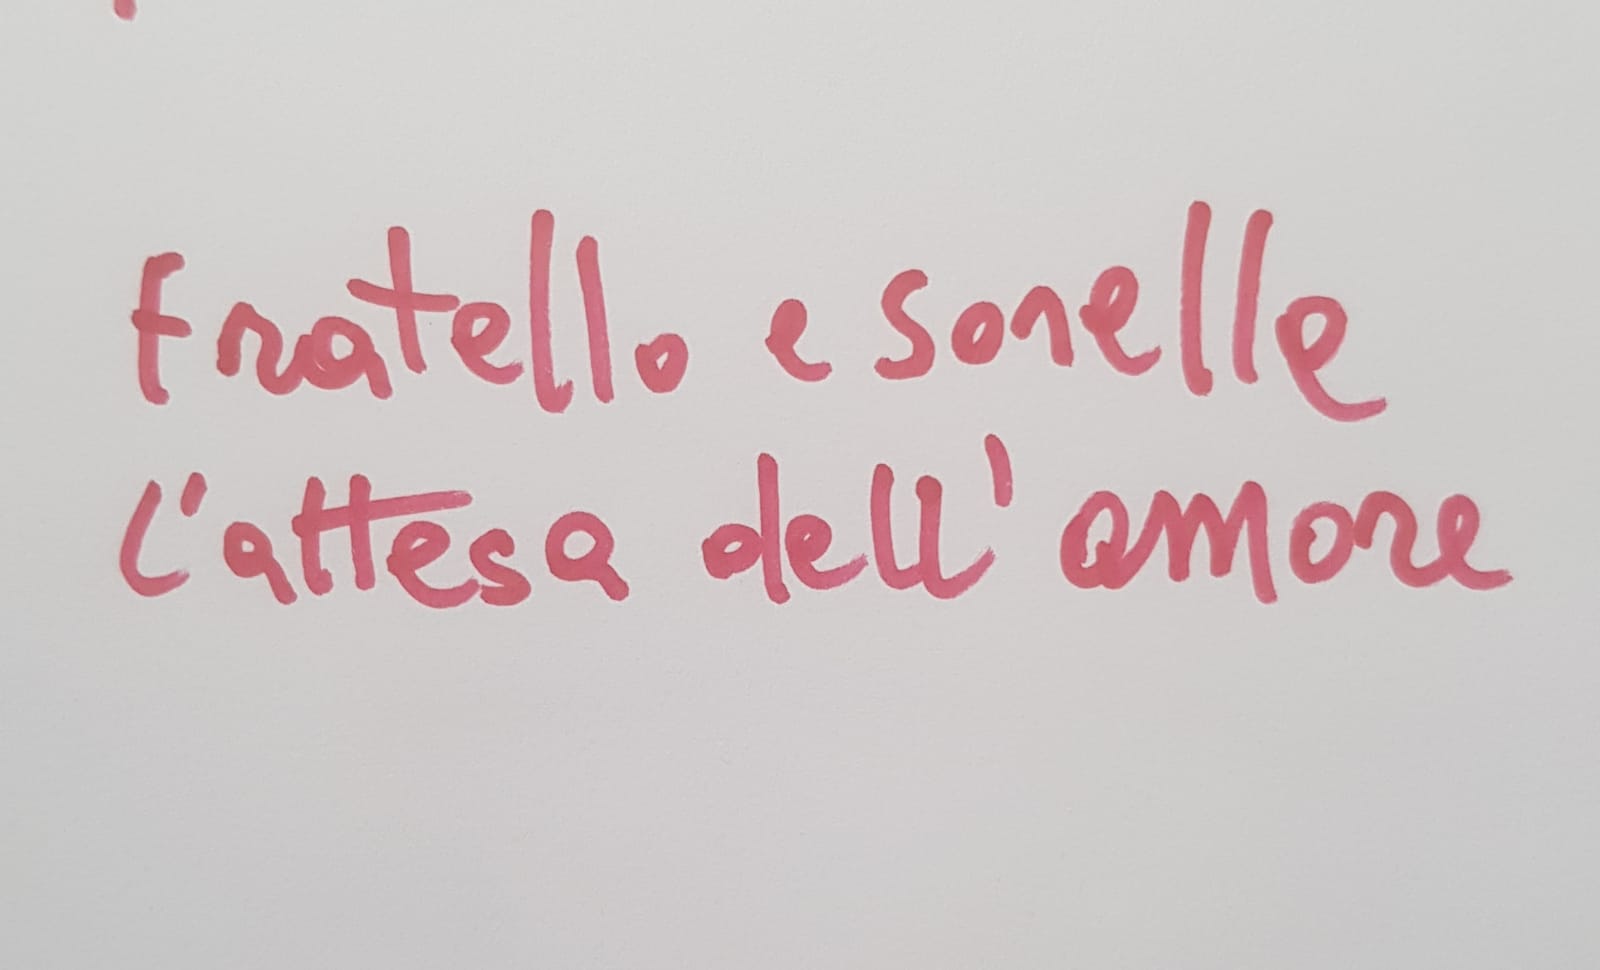 Fratello e sorelle
l'attesa dell'amore